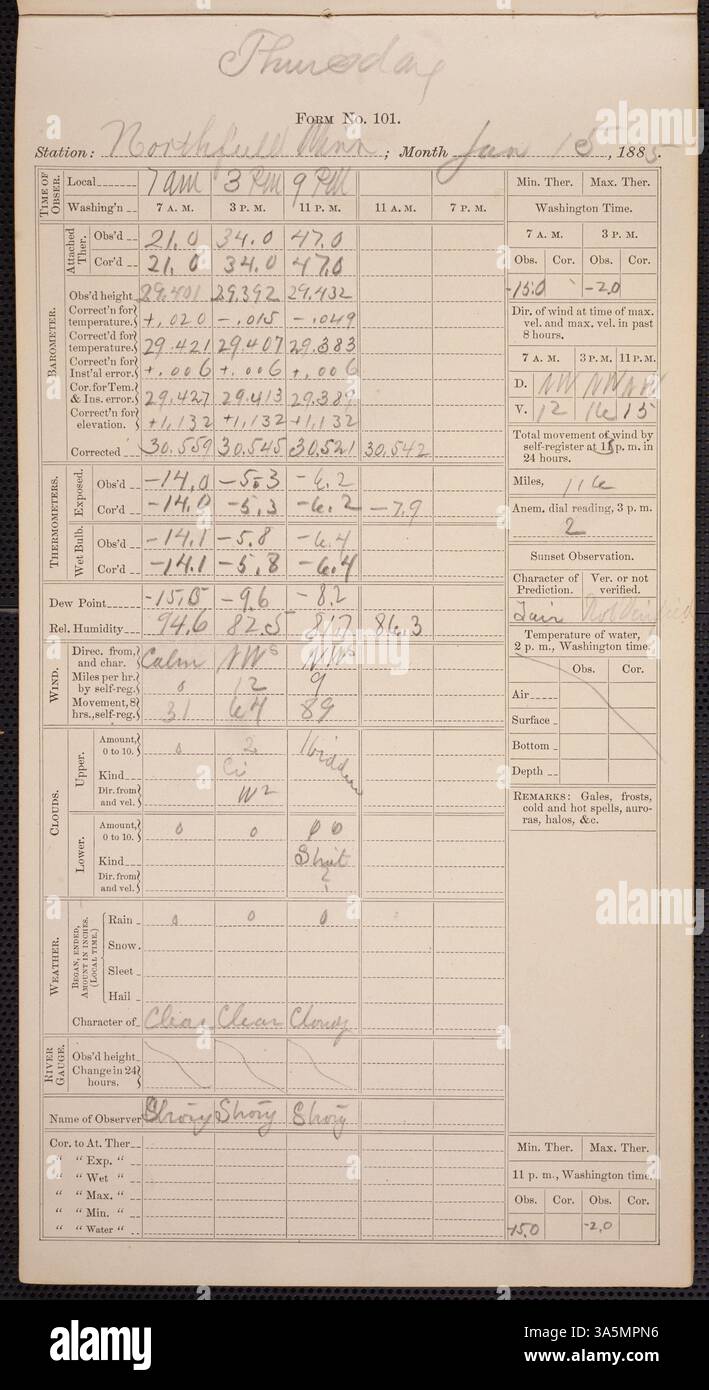 Thursday
FORM NO. 101.
Station: Northfield Minn ; Month Jan 15 , 1885.
TIME OF OBSER. Local 7 am 3 PM 9 PM
Washing'n 7 A. M. 3 P. M. 11 P. M. 11 A. M. 7 P. M.
BAROMETER.
Attached Ther. Obs'd 21.0 34.0 47.0
Cor'd 21.0 34.0 47.0
Obs'd height 29.401 29.392 29.432
Correct'n for temperature. +.020 -.015 -.049
Correct'd for temperature. 29.421 29.407 29.383
Correct'n for Inst'al error. +.006 +.006 +.006
Cor. for Tem. & Ins. error. 29.427 29.413 29.389
Correct'n for elevation. +1,132 +1,132 +1,132
Corrected 30.559 30.545 30.521 30.542
THERMOMETERS.
Exposed. Obs'd -14.0 -5.3 -6.2
Cor'd -14.0 -5.3 -6.2 -7.9
Wet Bulb. Obs'd -14.1 -5.8 -6.4
Cor'd -14.1 -5.8 -6.4
Dew Point -9.6 -8.2
Rel. Humidity 94.6 82.5 81.7 86.3
WIND.
Direc. from, and char. Calm NW
Miles per hr. by self-reg. 0 12 9
Movement, 8 hrs., self-reg. 31 64 89
CLOUDS.
Upper. Amount, 0 to 10. 0 2 Hidden
Kind Ci
Dir. from and vel. W 2
Lower. Amount, 0 to 10. 0 0
Kind
Dir. from and vel. ?
WEATHER.
BEGAN, ENDED, AMOUNT IN INCHES. (LOCAL TIME.)
Rain 0 0 0
Snow.
Sleet
Hail
Character of Clear Clear Cloudy
RIVER GAUGE.
Obs'd height
Change in 24 hours.
Name of Observer
Cor. to At. Ther
" " Exp. "
" " Wet "
" " Max. "
" " Min. "
" " Water "
Min. Ther. Max. Ther.
Washington Time.
7 A. M. 3 P. M.
Obs. Cor. Obs. Cor.
-15.0 -2.0
Dir. of wind at time of max. vel. and max. vel. in past 8 hours.
7 A. M. 3 P. M. 11 P. M.
D. NW NW NW
V. 12 16 15
Total movement of wind by self-register at p. m. in 24 hours.
Miles, 116
Anem. dial reading, 3 p. m.
2
Sunset Observation.
Character of Prediction. Ver. or not verified.
Fair
Temperature of water, 2 p. m., Washington time.
Obs. Cor.
Air
Surface
Bottom
Depth
REMARKS: Gales, frosts, cold and hot spells, auroras, halos, &c.
Min. Ther. Max. Ther.
11 p. m., Washington time.
Obs. Cor. Obs. Cor.
-15.0 -2.0
alamy
alamy
alamy
Image ID: 3A5MPN6
www.alamy.com